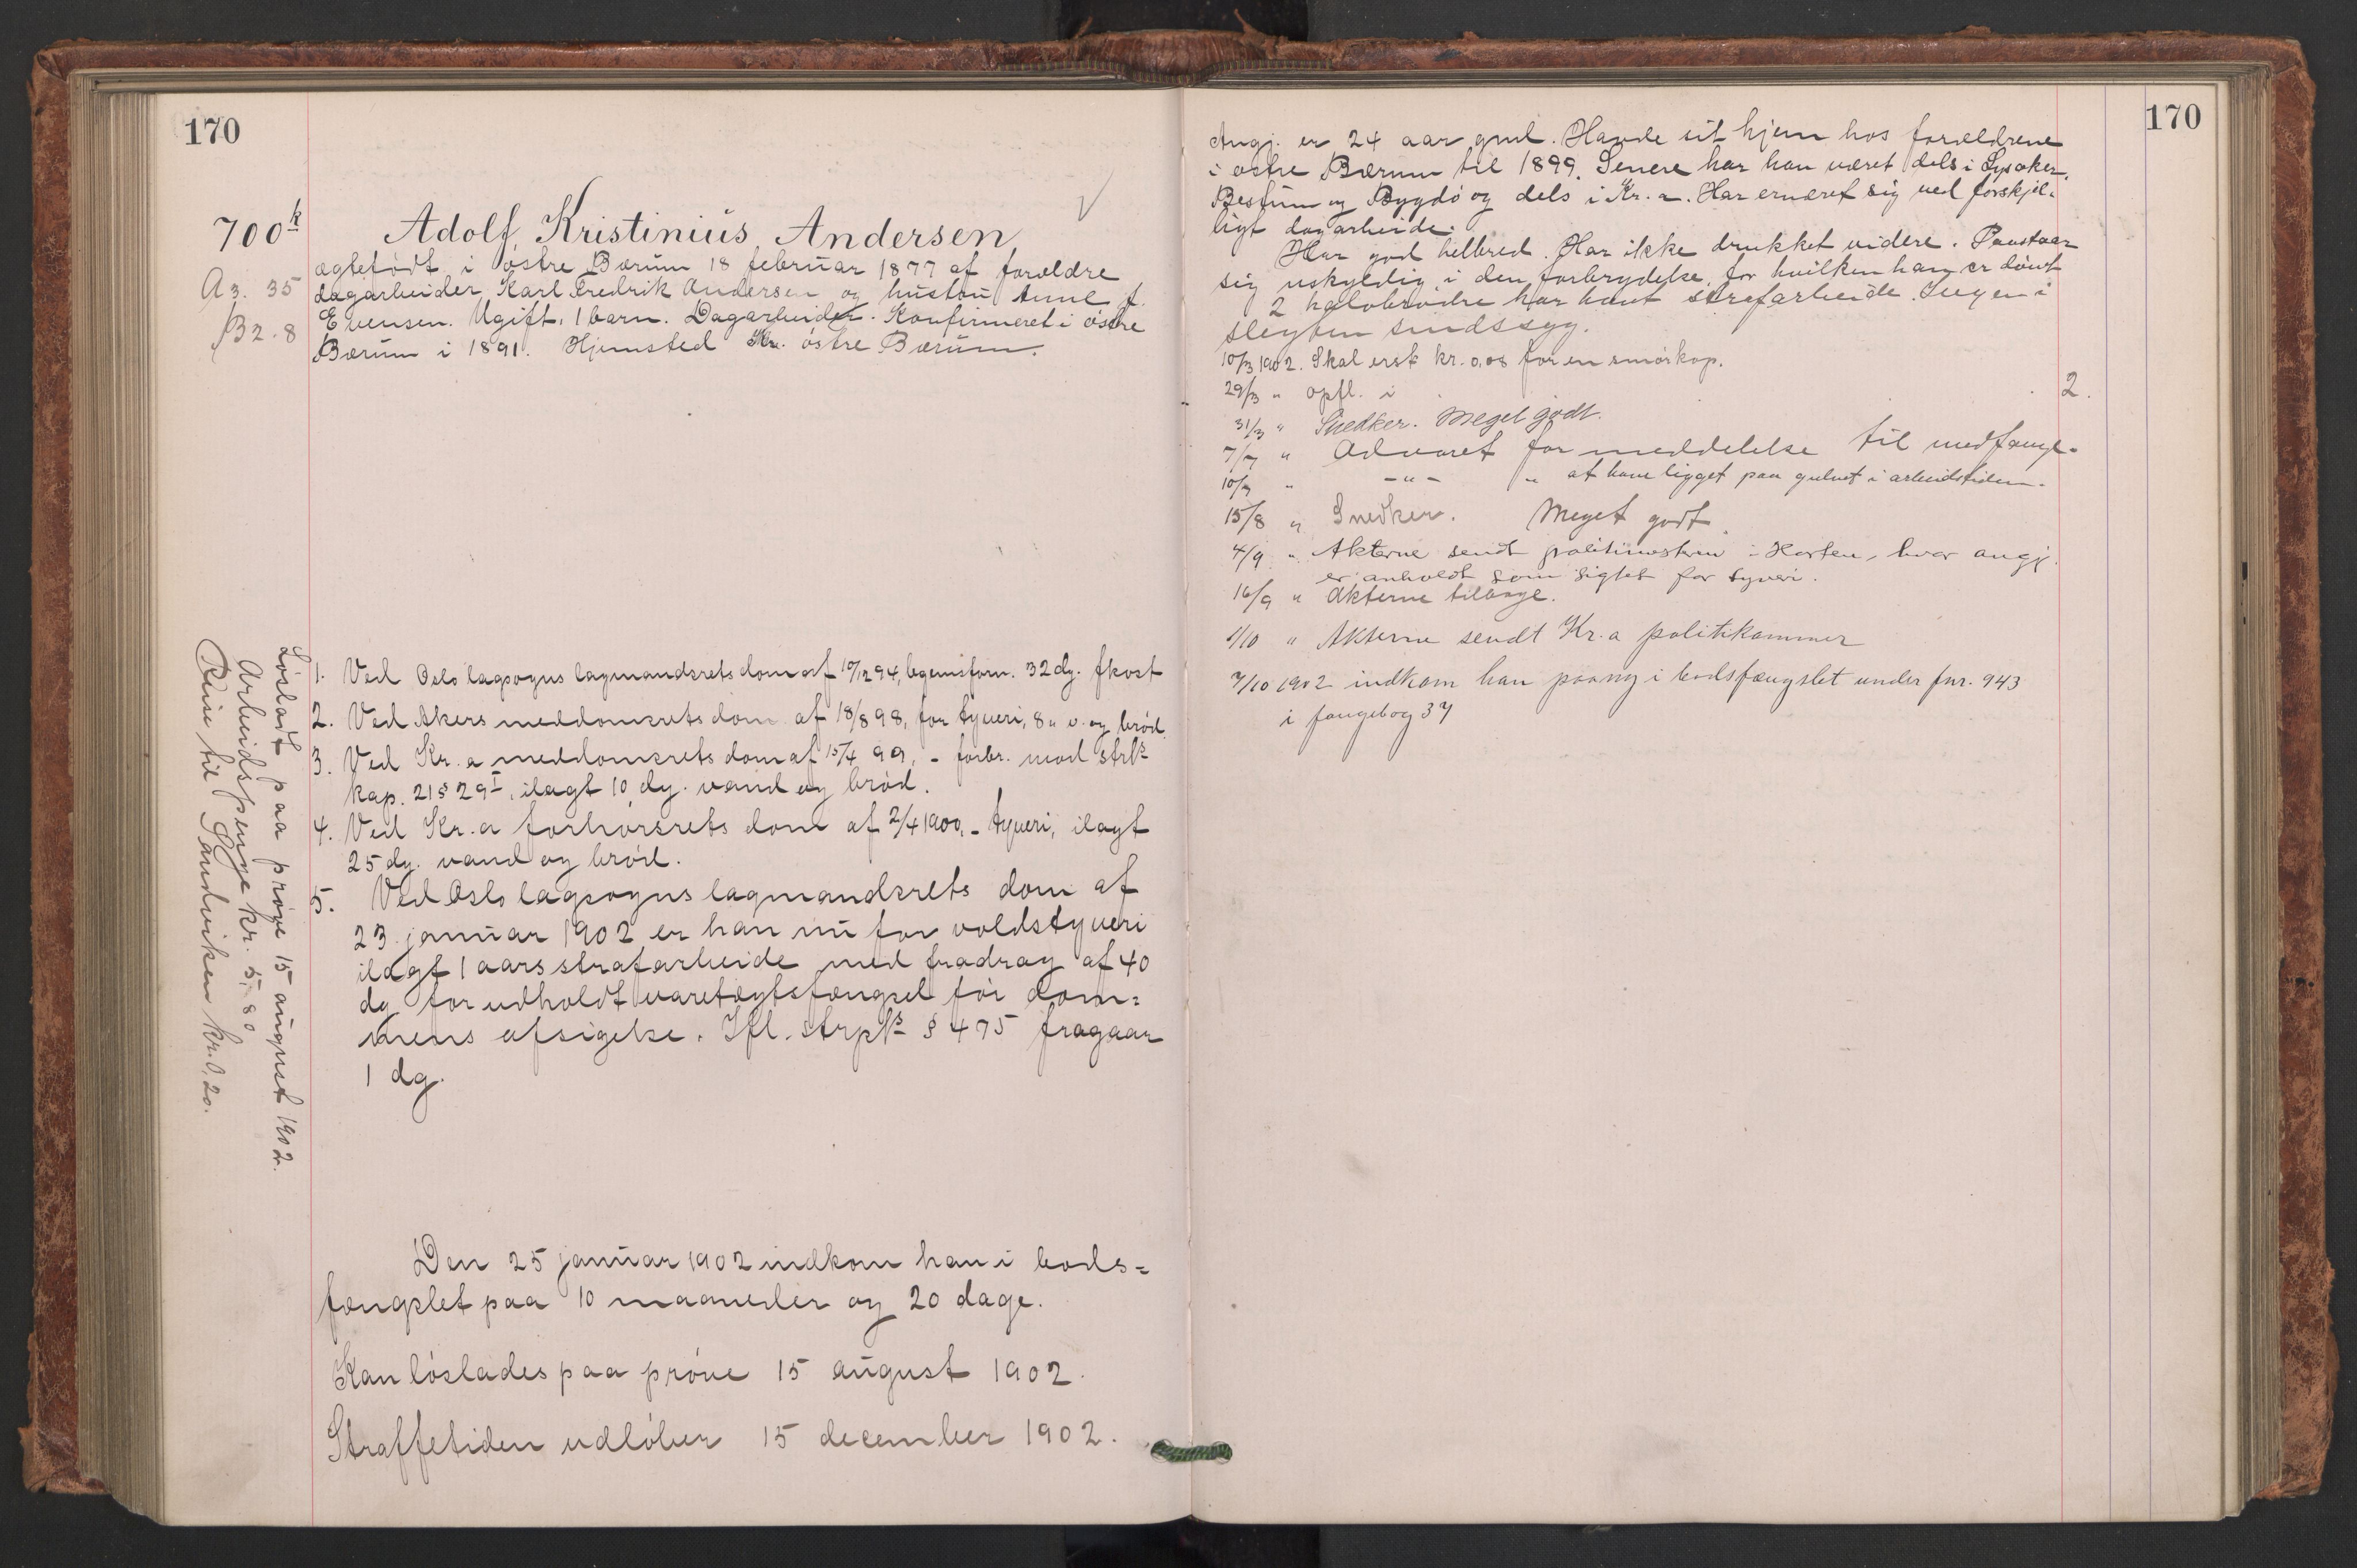 170
700k
A3. 35
B2. 8
Adolf Kristinius Andersen
ægtefødt i østre Bærum 18 februar 1877 af forældre
dagarbeider Karl Fredrik Andersen og hustru Anne f.
Evensen. Ugift. 1 barn. Dagarbeider. Konfirmeret i østre
Bærum i 1891. Hjemsted østre Bærum.
1. Ved Oslo lagsogns lagmandsrets dom af 10/12 94, legemsforn. 32 dg. fkost
2. Ved Akers meddomsrets dom af 18/8 98, for tyveri, 8 " v. og brød.
3. Ved Kr.a meddomsrets dom af 15/4 99, - forbr. mod strls
kap. 21 § 29 I, ilagt 10 dg. vand og brød.
4. Ved Kr.a forhørsrets dom af 2/4 1900, - tyveri, ilagt
25 dg. vand og brød.
5. Ved Oslo lagsogns lagmandsrets dom af
23 januar 1902 er han nu for voldstyveri
ilagt 1 aars strafarbeide med fradrag af 40
dg for udholdt varetægtsfængsel før dom=
mens afsigelse. Ifl. strpls § 475 fragaar
1 dg.
Den 25 januar 1902 indkom han i bods=
fængslet paa 10 maaneder og 20 dage.
Kan løslades paa prøve 15 august 1902.
Straffetiden udløber 15 december 1902.
Løsladt paa prøve 15 august 1902.
Arbeidspenge kr. 5,80
Reise til Sandviken kr. 0,20.
170
Angj. er 24 aar gml. Havde sit hjem hos forældrene
i østre Bærum til 1899. Senere har han været dels i Lysaker,
Bestum og Bygdø og dels i Kr.a. Har ernæret sig ved forskjel-
ligt dagarbeide.
Har god helbred. Har ikke drukket videre. Paastaar
sig uskyldig i den forbrydelse, for hvilken han er dømt
2 halvbrødre har havt strafarbeide. Ingen i
slegten sindssyg.
10/3 1902. Skal erst. kr. 0,08 for en smørkop.
29/3 " opfl. i 2.
31/3 " Snedker. Meget godt.
7/7 " Advaret for meddelelse til medfange.
10/7 " -"- " at have ligget paa gulvet i arbeidstiden.
15/8 " Snedker. Meget godt
4/9 " Akterne sendt politimesteren i Horten, hvor angj.
er anholdt som sigtet for tyveri.
16/9 " Akterne tilbage.
1/10 " Akterne sendt Kr.a politikammer
7/10 1902 indkom han paany i bodsfængslet under fnr. 943
i fangebog 37